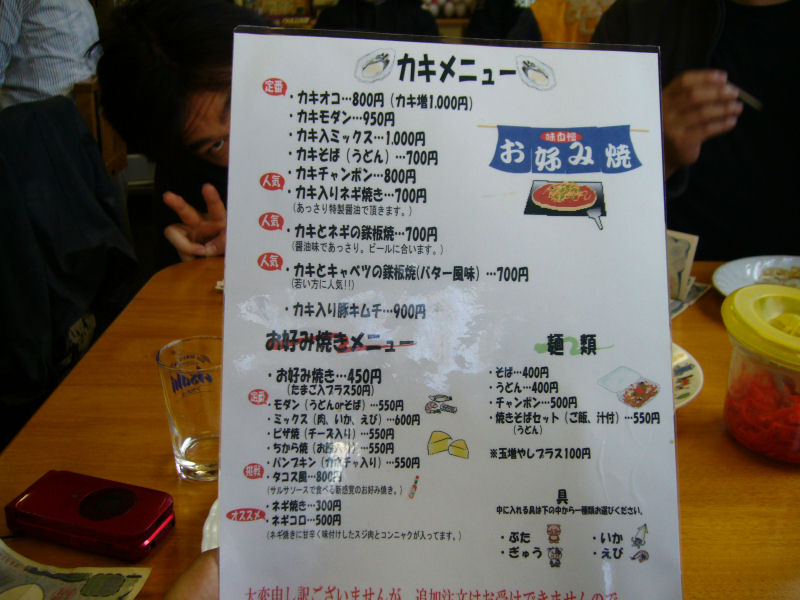 カキメニュー
定番
・カキオコ…800円（カキ増1.000円）
・カキモダン…950円
・カキ入ミックス…1.000円
・カキそば（うどん）…700円
人気
・カキチャンポン…800円
・カキ入りネギ焼き…700円
（あっさり特製醤油で頂きます。）
人気
・カキとネギの鉄板焼…700円
（醤油味であっさり。ビールに合います。）
人気
・カキとキャベツの鉄板焼(バター風味）…700円
（若い方に人気!!）
・カキ入り豚キムチ…900円
味自慢
お好み焼
お好み焼きメニュー
・お好み焼き…450円
（たまご入プラス50円）
定番
・モダン（うどんorそば）…550円
・ミックス（肉、いか、えび）…600円
・ピザ焼（チーズ入り）…550円
・ちから焼（お餅入り）…550円
・パンプキン（カボチャ入り）…550円
挑戦
・タコス風…800円
（サルサソースで食べる新感覚のお好み焼き。）
・ネギ焼き…300円
オススメ
・ネギコロ…500円
（ネギ焼きに甘辛く味付けしたスジ肉とコンニャクが入ってます。）
麺類
・そば…400円
・うどん…400円
・チャンポン…500円
・焼きそばセット（ご飯、汁付）…550円
（うどん）
※玉増やしプラス100円
具
中に入れる具は下の中から一種類お選びください。
・ぶた
・いか
・ぎゅう
・えび
大変申し訳ございませんが、追加注文はお受けできませんので